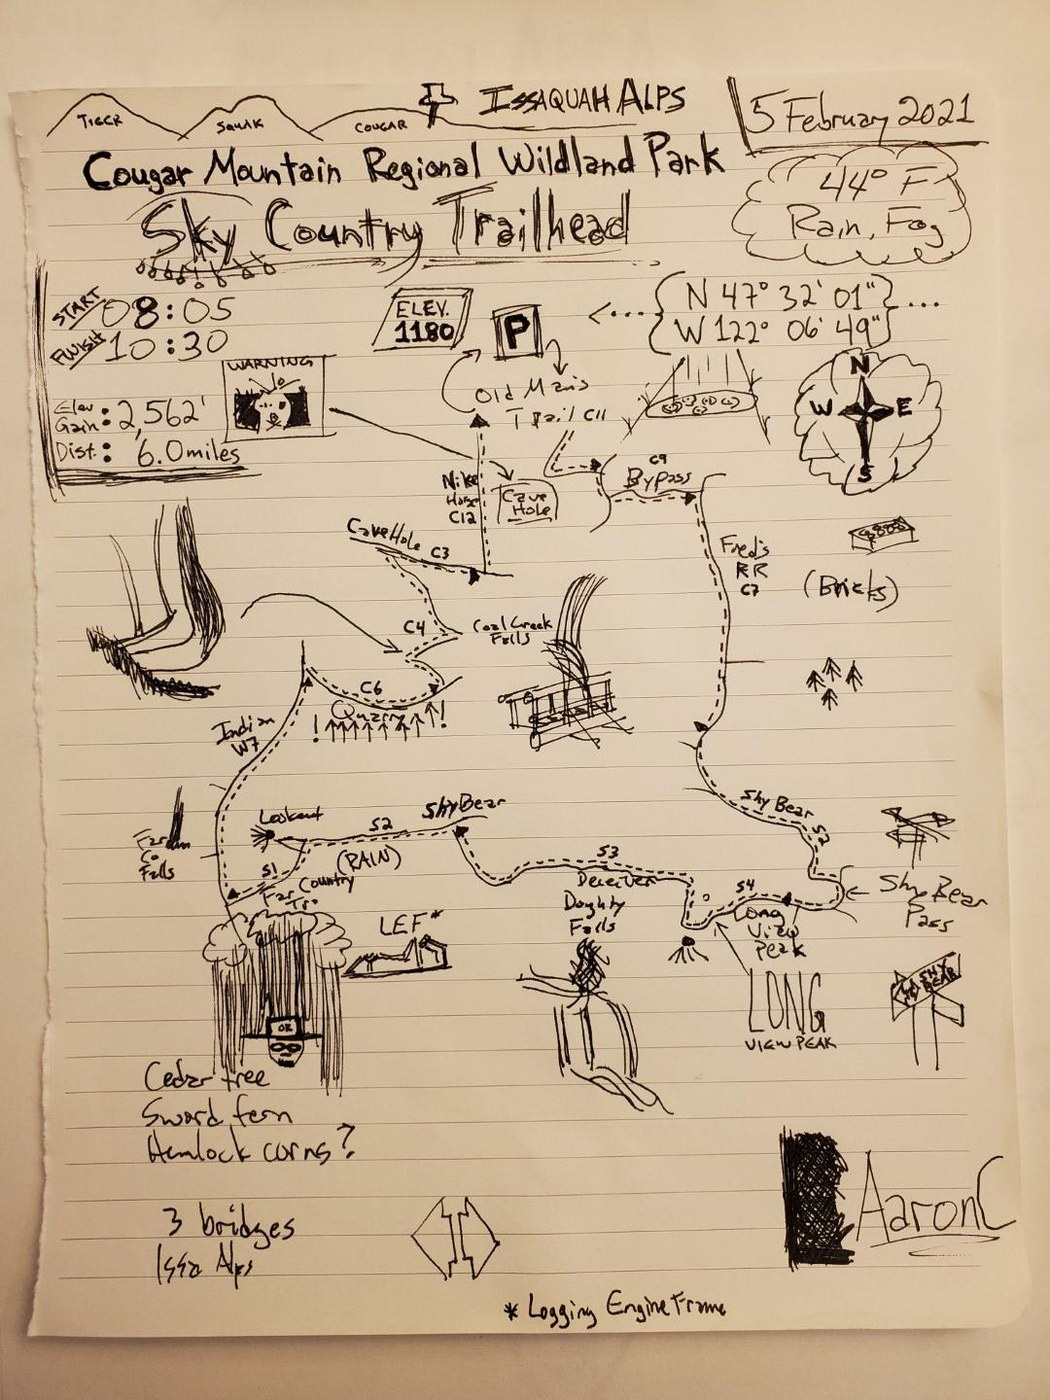 TIGER
SQUAK
COUGAR
ISSAQUAH ALPS
5 February 2021
Cougar Mountain Regional Wildland Park
Sky Country Trailhead
44° F
Rain, Fog
START 08:05
FINISH 10:30
ELEV.
1180
P
N 47° 32' 01"
W 122° 06' 49"
WARNING
Elev
Gain: 2,562'
Dist.: 6.0miles
N
W E
S
Old Man's
Trail C11
C9
Bypass
Nike
Horse
C12
Cave
Hole
Cave Hole
C3
Fred's
RR
C7
(Bricks)
C4
Coal Creek
Falls
C6
Quarry
! !
Indian
W7
Lookout
S2
Shy Bear
(RAIN)
Shy Bear
S2
Far
Co
Falls
S1
Far Country
S3
Deceiver
S4
Shy Bear
Pass
Doughty
Falls
Long
View
Peak
LEF*
LONG
VIEW PEAK
SHY
BEAR
Cedar tree
Sword fern
Hemlock corns?
3 bridges
Issa Alps
AaronC
* Logging Engine Frame